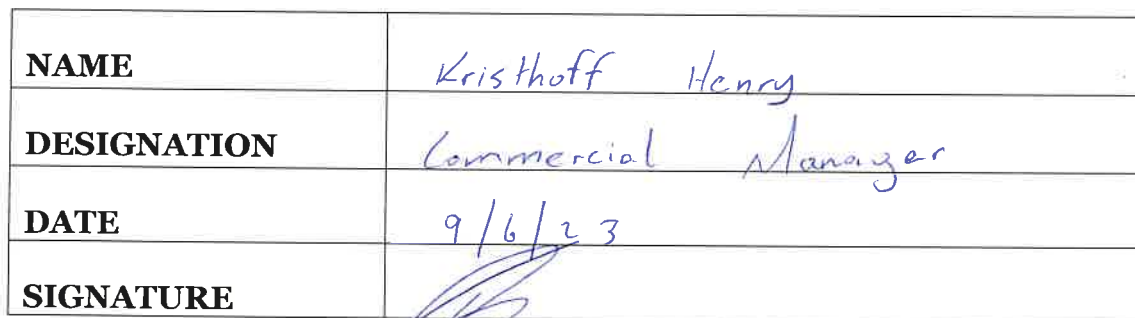 NAME Kristhoff Henry
DESIGNATION Commercial Manager
DATE 9/6/23
SIGNATURE